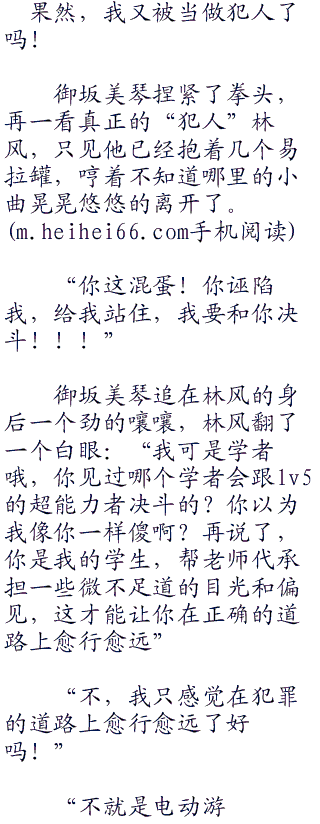 果然，我又被当做犯人了
吗！
御坂美琴捏紧了拳头，
再一看真正的“犯人”林
风，只见他已经抱着几个易
拉罐，哼着不知道哪里的小
曲晃晃悠悠的离开了。
(m.heihei66.com手机阅读)
“你这混蛋！你诬陷
我，给我站住，我要和你决
斗！！！”
御坂美琴追在林风的身
后一个劲的嚷嚷，林风翻了
一个白眼：“我可是学者
哦，你见过哪个学者会跟lv5
的超能力者决斗的？你以为
我像你一样傻啊？再说了，
你是我的学生，帮老师代承
担一些微不足道的目光和偏
见，这才能让你在正确的道
路上愈行愈远”
“不，我只感觉在犯罪
的道路上愈行愈远了好
吗！”
“不就是电动游